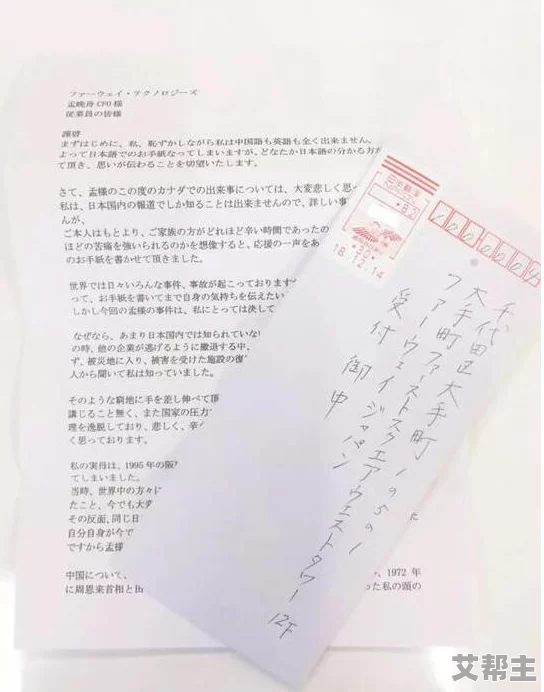 ファーウェイ・テクノロジーズ
孟晩舟 CFO 様
従業員の皆様
謹啓
まずはじめに、私、恥ずかしながら私は中国語も英語も全く出来ません。
よって日本語でのお手紙なってしまいますが、どなたか日本語の分かる方
て頂き、思いが伝わることを切望いたします。
さて、孟様のこの度のカナダでの出来事については、大変悲しく思っ
私は、日本国内の報道でしか知ることは出来ませんので、詳しい事
んが、
ご本人はもとより、ご家族の方がどれほど辛い時間であったの
ほどの苦痛を強いられるのかを想像すると、応援の一声をあ
のお手紙を書かせて頂きました。
世界では日々いろんな事件、事故が起こっております
って、お手紙を書いてまで自身の気持ちを伝えたい
しかし今回の孟様の事件は、私にとっては決して
なぜなら、あまり日本国内では知られていない
の時、他の企業が逃げるように撤退する中、
ず、被災地に入り、被害を受けた施設の復
人から聞いて私は知っていました。
そのような窮地に手を差し伸べて頂
講じること無く、また国家の圧力
理を逸脱しており、悲しく、辛
く思っております。
私の実母は、1995 年の阪
てしまいました。
当時、世界中の方々に
たこと、今でも大変
その反面、同じ日
自分自身が今で
ですから孟様
中国について、
、1972 年
に周恩来首相と
った私の頭の
日本郵便
82
18.12.14
千代田区大手町1の5の1
大手町ファーストスクエアウエストタワー12F
ファーウェイジャパン
受付 御中
艾帮主